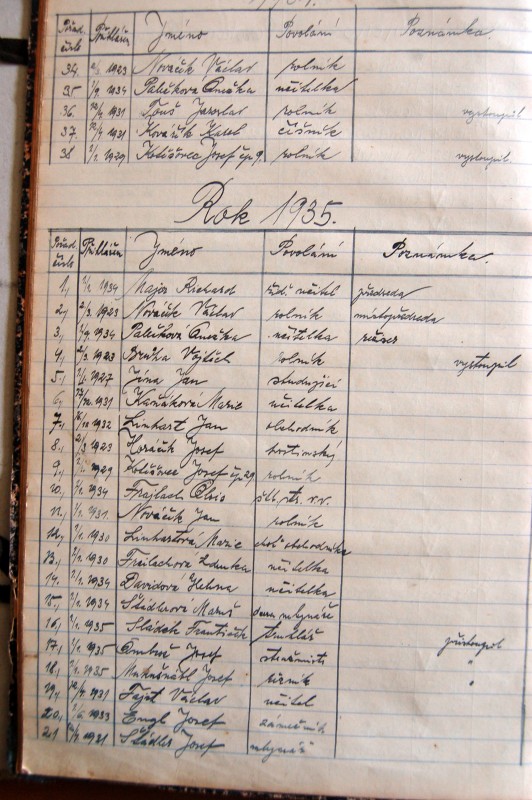 Pořad. číslo Přihlášen Jméno Povolání Poznámka.
34. 2/3 1923 Nováčik Václav rolník
35 1/9 1934 Palečková Anežka učitelka
36. 1931 Touš Jaroslav rolník vystoupil
37. 1931 Kováčik Karel číšník
38 2/1 1929 Kolišovec Josef čp 9. rolník vystoupil
Rok 1935.
Pořad. číslo Přihlášen Jméno Povolání Poznámka.
1, 1/1 1934 Major Richard říd. učitel předseda
2, 2/3 1923 Nováčik Václav rolník místopředseda
3., 1/9 1934 Palečková Anežka učitelka
4., 1923 Vojtěch rolník vystoupil
5., 1927 Jína Jan studující
6., 1931 Kaňáková Marie učitelka
7., 1932 Linhart Jan obchodník
8., 2/3 1923 Horáčik Josef hostinský
9., 2/1 1929 Kolišovec Josef čp. 29 rolník
10., 1/1 1934 Frajlach Alois v.v.
11., 1/1 1931. Nováčik Jan rolník
12., 1/1 1930 Linhartová Marie choť obchodníka
13., 1/1 1930 Freilachova Zdenka učitelka
14. 1/1 1934 Davidova Helena učitelka
15., 1/1 1934 Städlerova dcera mlynáře
16., 1/1 1935 Sládek František truhlář
17., 1/1 1935 Josef přistoupil
18., 1/1 1935 Josef řezník "
19., 1921 Fajst Václav učitel
20., 1933 Engl Josef zámečník
21 1921 Städler Josef mlynář